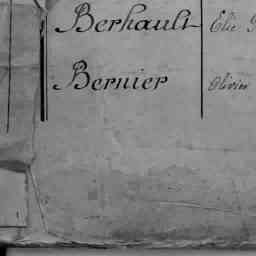 Berhault Elie
Bernier Olivier